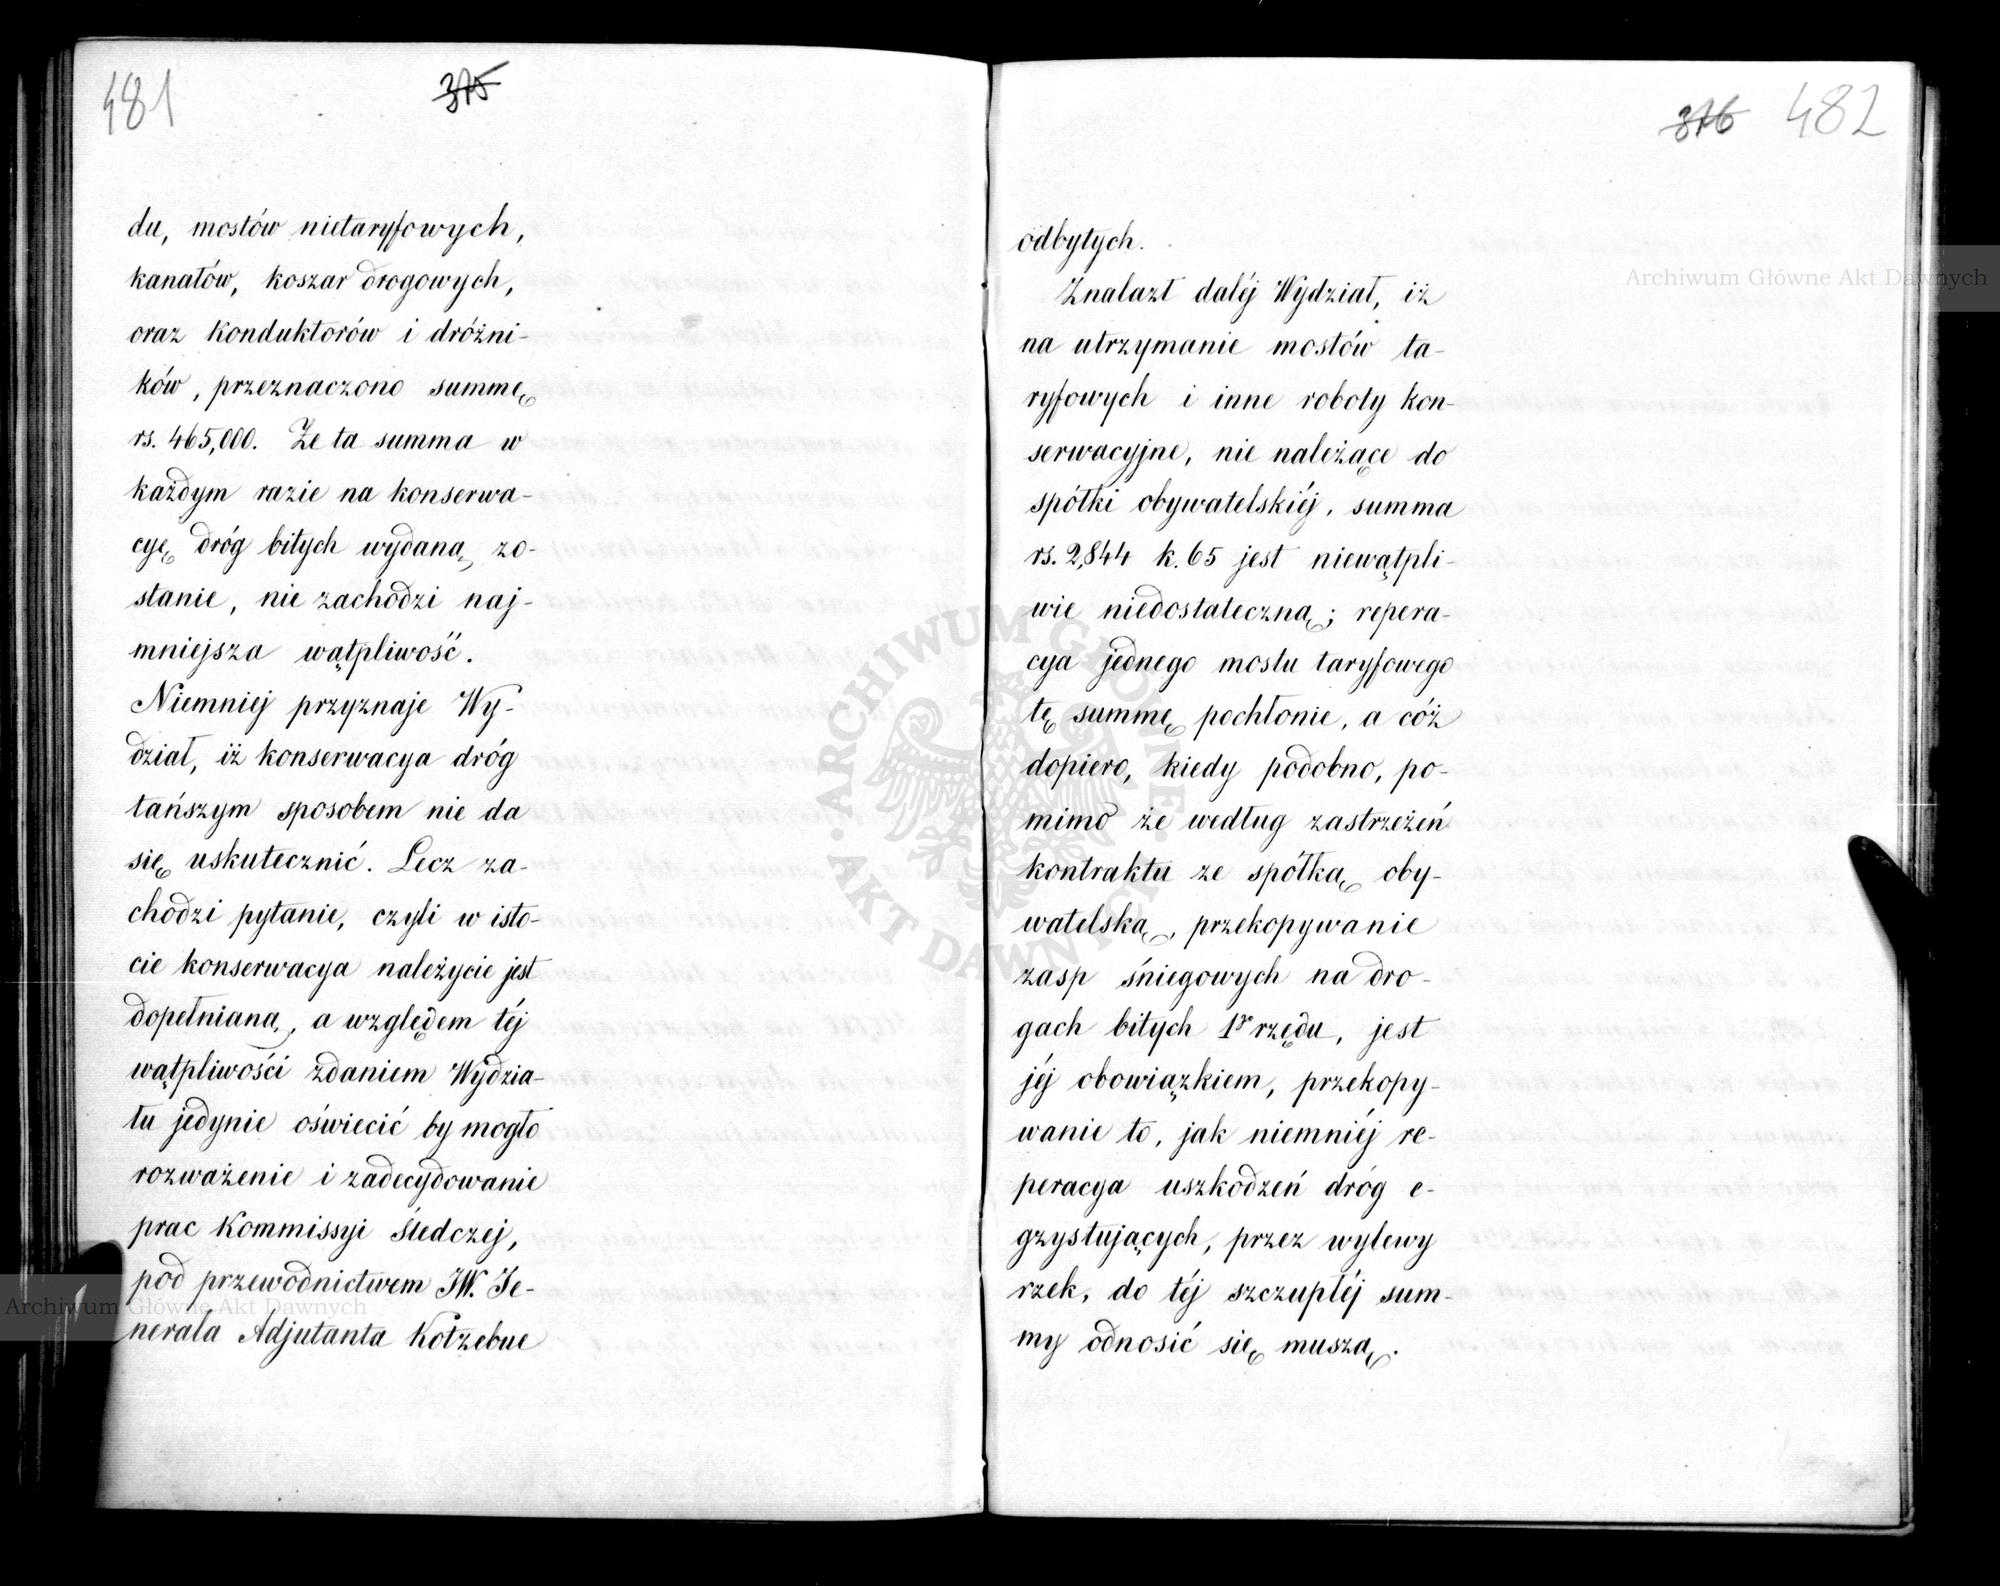 481
375
du, mostów nietaryfowych,
kanałów, koszar drogowych,
oraz konduktorów i dróżni-
ków, przeznaczono summę
rs. 465,000. Że ta summa w
każdym razie na konserwa-
cyę dróg bitych wydaną zo-
stanie, nie zachodzi naj-
mniejsza wątpliwość.
Niemniej przyznaje Wy-
dział, iż konserwacya dróg
tańszym sposobem nie da
się uskutecznić. Lecz za-
chodzi pytanie, czyli w isto-
cie konserwacya należycie jest
dopełnianą, a względem téj
wątpliwości zdaniem Wydzia-
łu jedynie oświecić by mogło
rozważenie i zadecydowanie
prac Kommissyi Śledczej,
pod przewodnictwem JW. Je-
nerała Adjutanta Kotzebue
376 482
odbytych.
Znalazł daléj Wydział, iż
na utrzymanie mostów ta-
ryfowych i inne roboty kon-
serwacyjne, nie należące do
spółki obywatelskiéj, summa
rs. 2,844 k. 65 jest niewątpli-
wie niedostateczną; repera-
cya jednego mostu taryfowego
tę summę pochłonie, a cóż
dopiero, kiedy podobno, po-
mimo że według zastrzeżeń
kontraktu ze spółką oby-
watelską, przekopywanie
zasp śniegowych na dro-
gach bitych 1go rzędu, jest
jéj obowiązkiem, przekopy-
wanie to, jak niemniéj re-
peracya uszkodzeń dróg e-
gzystujących, przez wylewy
rzek, do téj szczupłéj sum-
my odnosić się muszą.
Archiwum Główne Akt Dawnych
Archiwum Główne Akt Dawnych
ARCHIWUM GŁÓWNE
AKT DAWNYCH